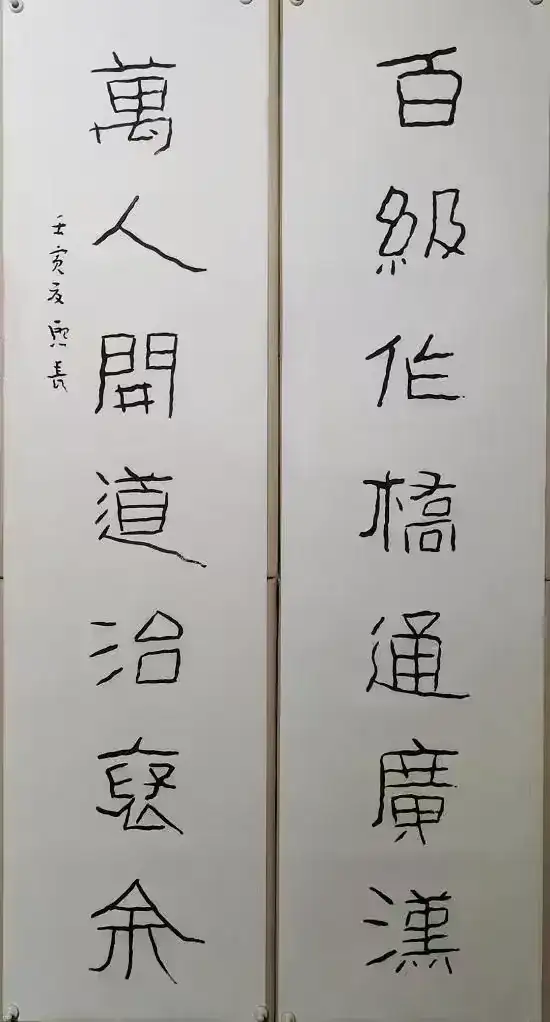 百級作橋通廣漢
萬人開道治褒余
壬寅友熙長